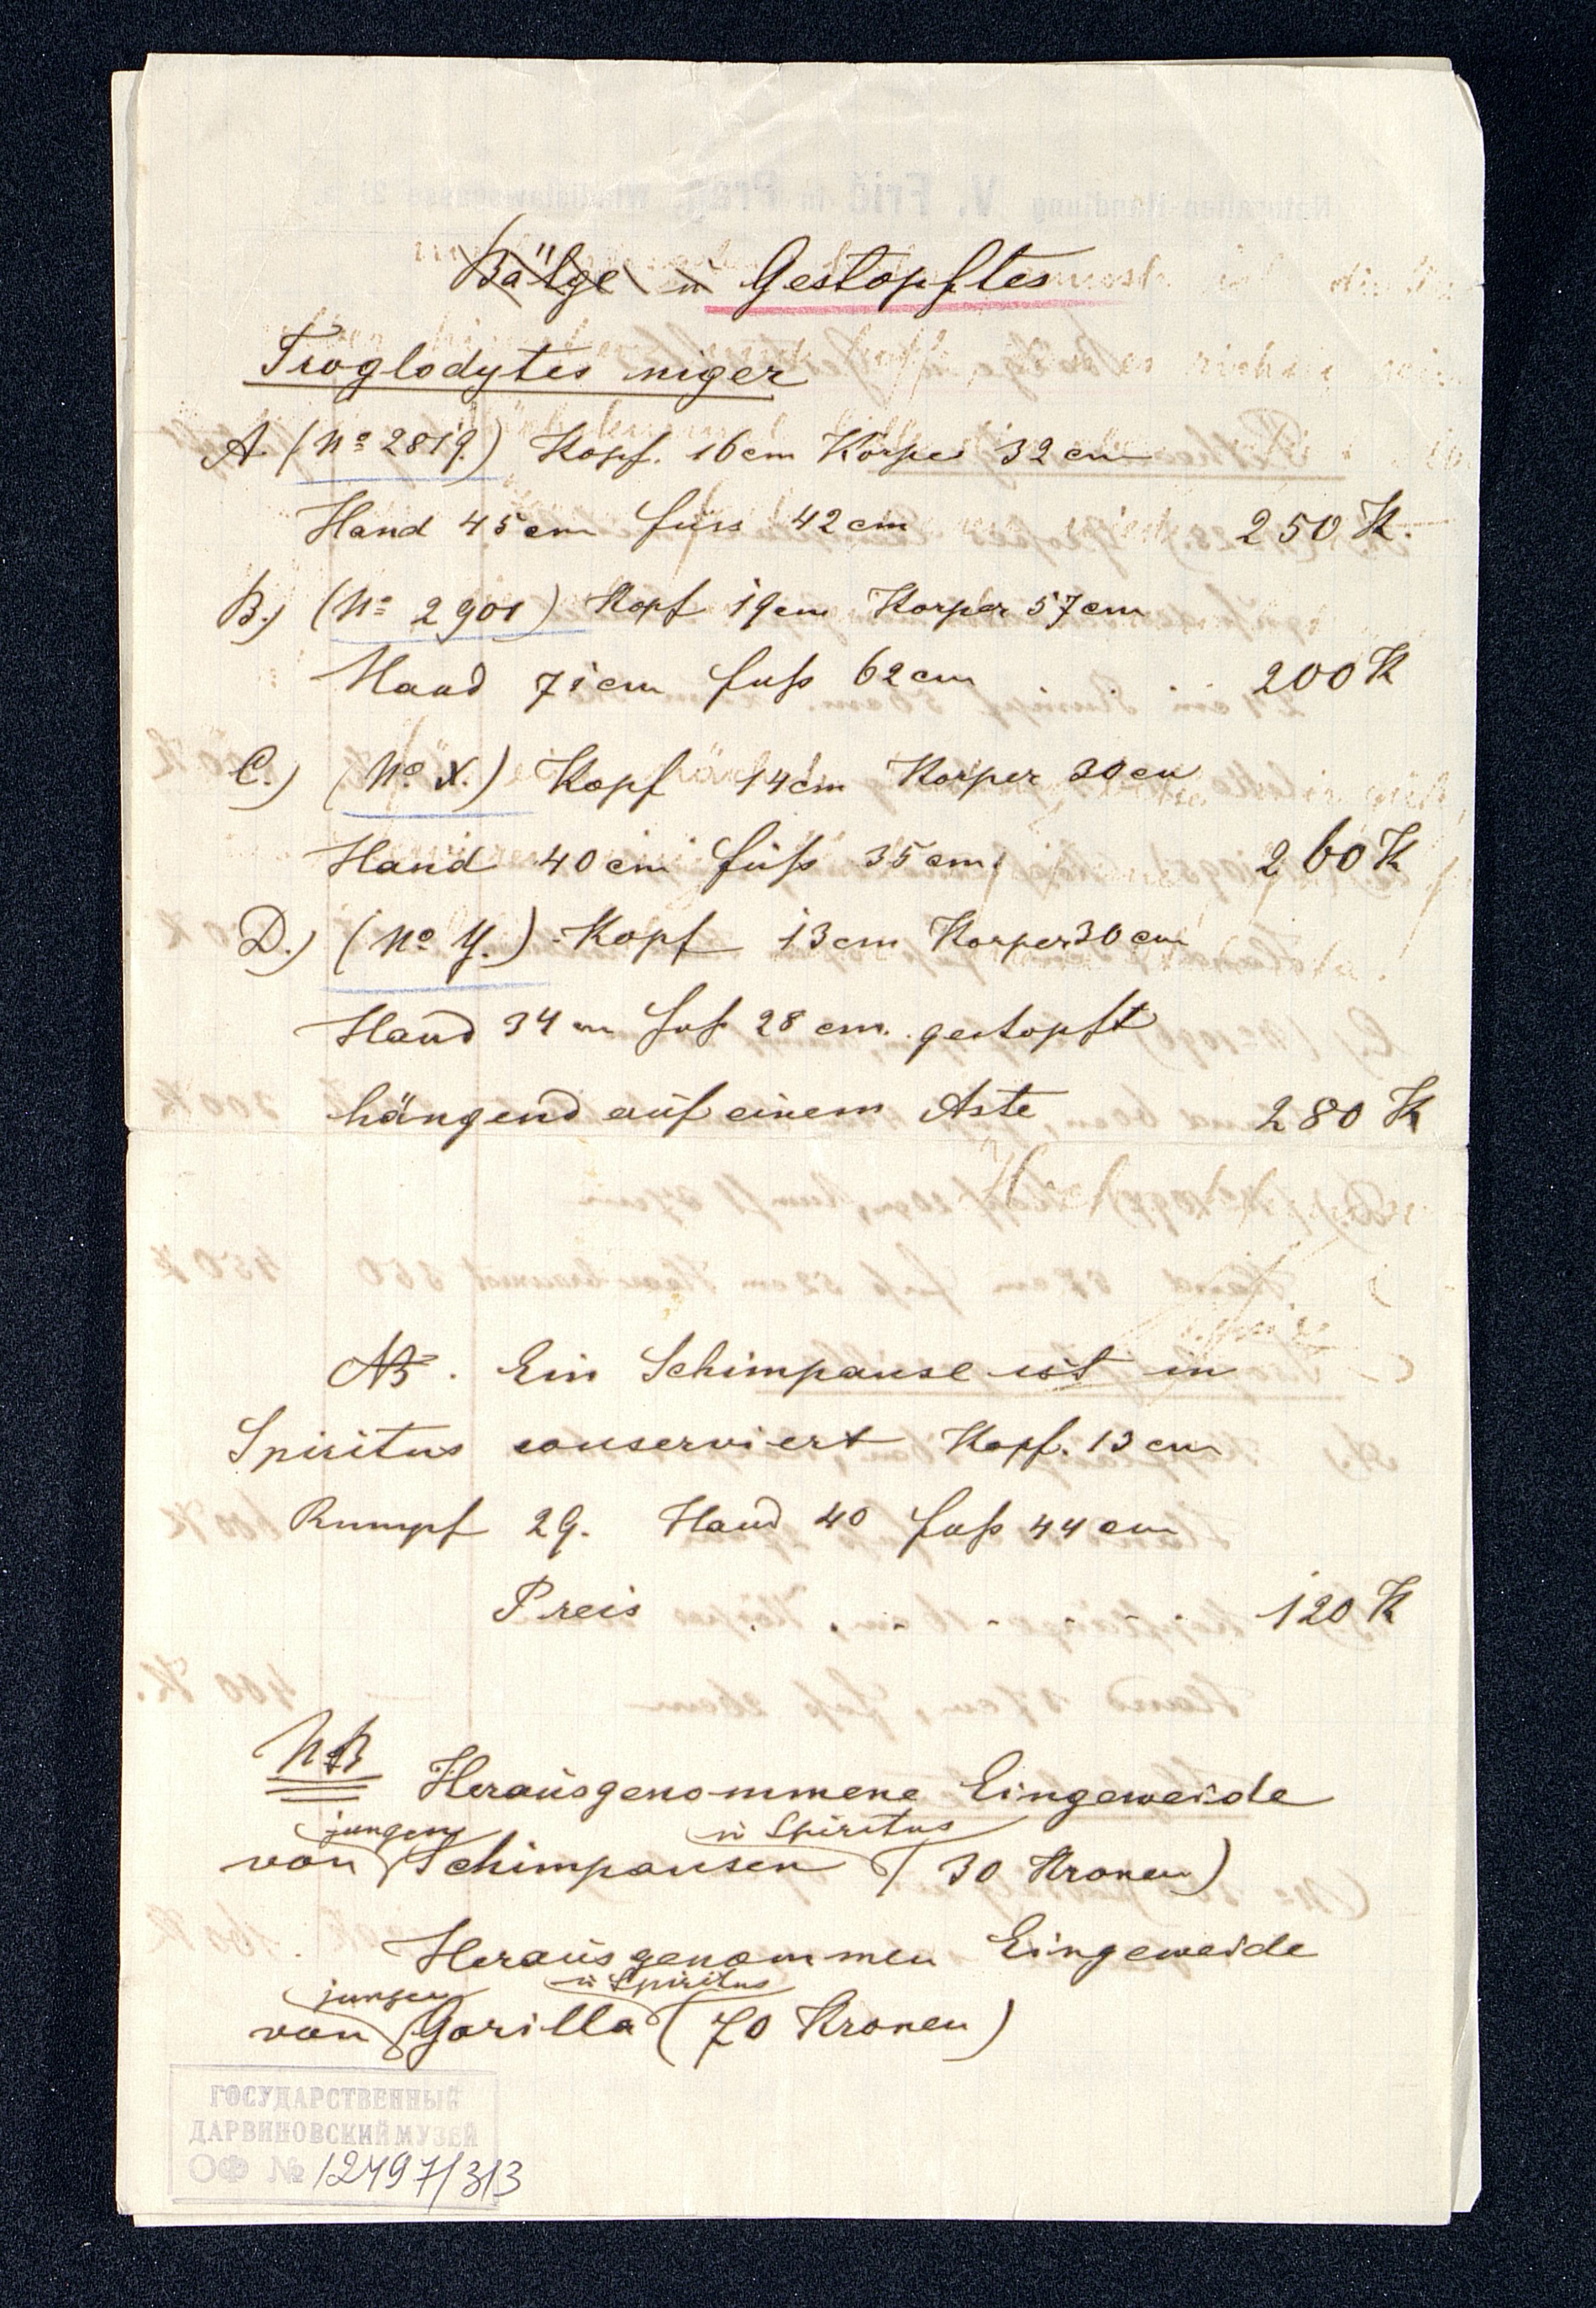 Bälge u Gestopftes
Troglodytes niger
A. (No 2819.) Kopf. 16 cm Körper 32 cm
Hand 45 cm füss 42 cm 250 K.
B.) (No 2901) Kopf 19 cm Korper 57 cm
Hand 71 cm fuß 62 cm 200 K
C.) (No X.) Kopf 14 cm Korper 30 cm
Hand 40 cm fuß 35 cm. 260 K
D.) (No Y.) Kopf 13 cm Korper 30 cm
Hand 34 cm fuß 28 cm. gestopft
hängend auf einem Aste 280 K
NB. Ein Schimpanse ist in
Spiritus conserviert Kopf. 13 cm
Rumpf 29. Hand 40 fuß 44 cm
Preis 120 K
NB Herausgenommene Eingeweide
jungen in Spiritus
von Schimpansen (30 Kronen)
Herausgenommen Eingeweide
jungen in Spiritus
von Gorilla (70 Kronen)
ГОСУДАРСТВЕННЫЙ
ДАРВИНОВСКИЙ МУЗЕЙ
ОФ № 12497/313